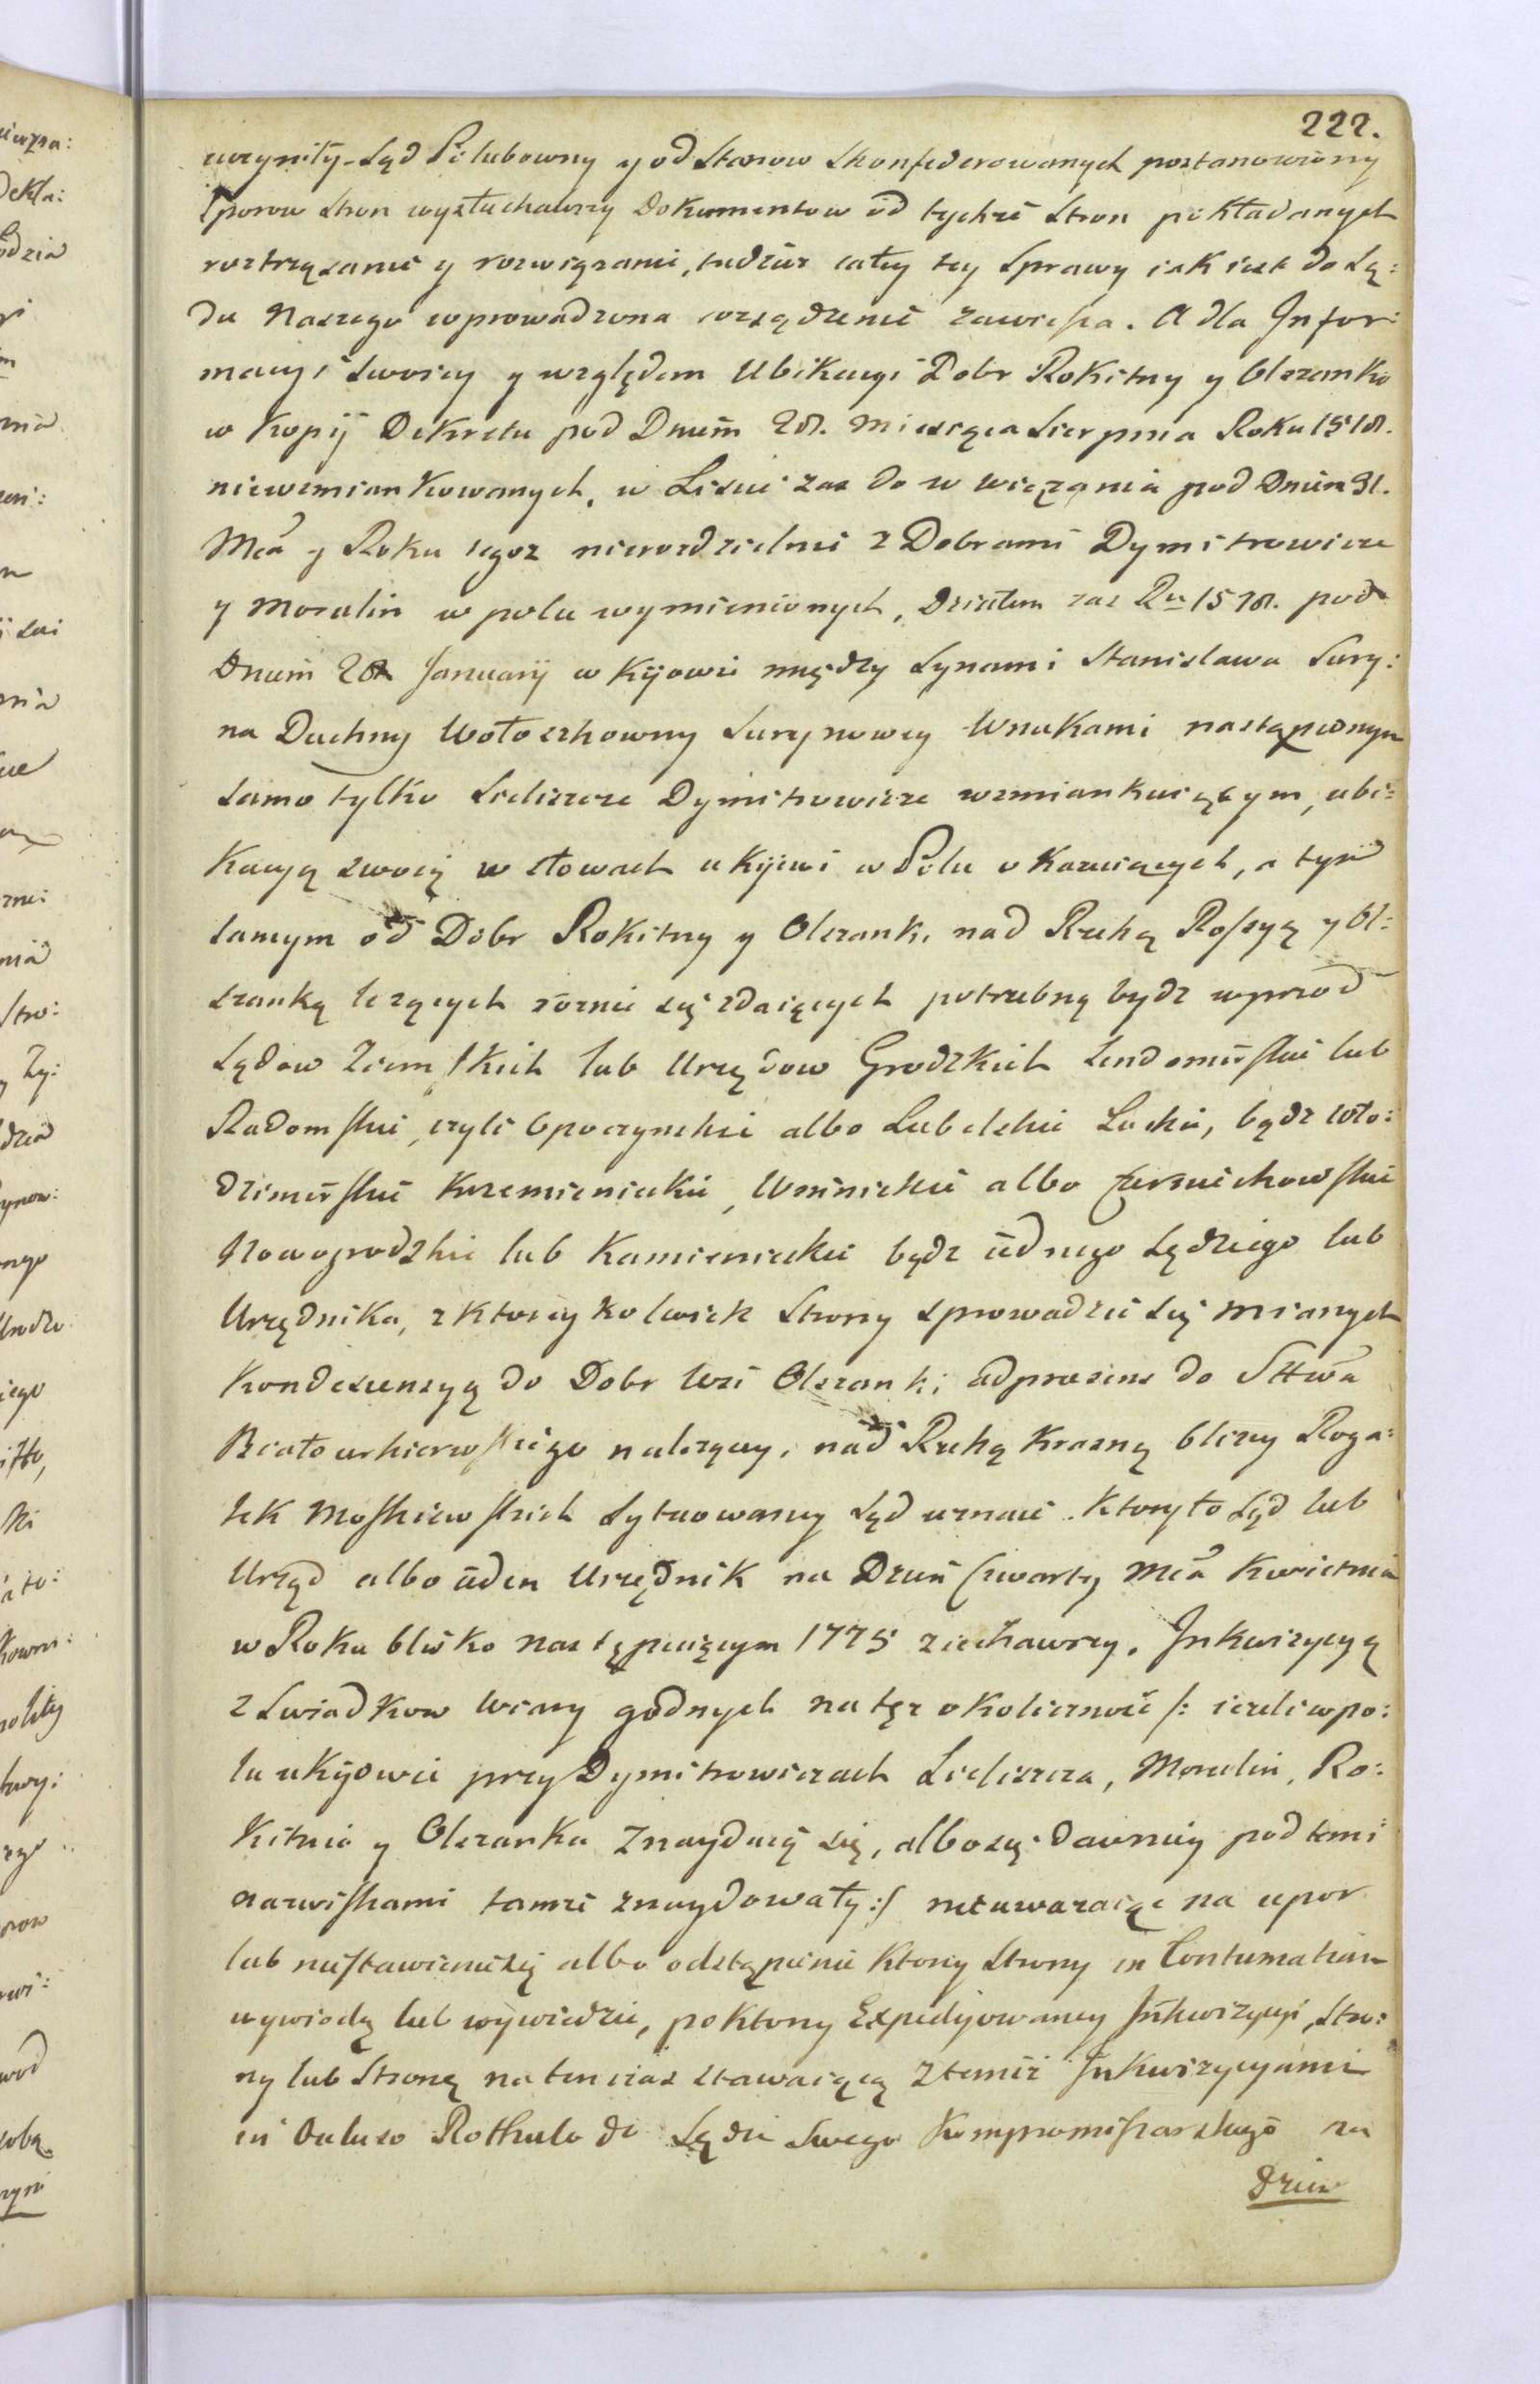 222.
uczyniły. Sąd Polubowny y od Stanow Skonfederowanych postanowiony
Sporow Stron wysłuchawszy Dokumentow od tychże Stron pokładanych
roztrząsanie y rozwiązanie, tudzież całey tey Sprawy iak iest do Są:
du Naszego wprowadzona rozsądzenie zawiesza. A dla Infor:
macyi Swoiey y względem Ubikacyi Dobr Rokitny y Olszanki
w Kopij Dekretu pod Dniem 28. Miesiąca Sierpnia Roku 1518.
niewzmiankowanych, w Liście zas do w wiązania pod Dniem 31.
Mca y Roku tegoz nierozdzielnie z Dobrami Dymitrowicze
y Mozalin w polu wymienionych, Działem zas Ru 1578. pod
Dniem 28 Januarij w Kijowie między Synami Stanisława Sury:
na Duchny Wołoszkowny Surynowey Wnukami nastąpionym
samo tylko Sieliszcze Dymitrowicze wzmiankuiącym, ubi:
kacyą swoią w słowach u Kijewi w Polu okazuiących, a tym
samym od Dobr Rokitny y Olszanki nad Rzeką Rossyą y Ol:
szanką leżących rożnie się zdaiących potrzebną bydz wprzod
Sądow Ziemskich lub Urzędow Grodzkich Sendomirskie lub
Radomskie, czyli Opoczynskie albo Lubelskie Łuckie, bądz Wło:
dzimirskie Krzemienieckie, Winnickie albo Czerniechowskie
Nowogrodzkie lub Kamienieckie bądz iednego Sędziego lub
Urzędnika, z ktoreykolwiek Strony sprowadzić się mianych
Kondescensyą do Dobr Wsi Olszanki adpraesens do Sttwa
Białocerkiewskiego należącey, nad Rzeką Krasną bliżey Roga:
tek Moskiewskich Sytuowaney Sąd uznaie. Ktory to Sąd lub
Urząd albo ieden Urzędnik na Dzień Czwarty Mca Kwietnia
w Roku blisko następuiącym 1775 ziechawszy, Inkwizycyą
z Swiadkow Wiary godnych na tęz okoliczność /: ieżeli w po:
lu u Kijowie przy Dymitrowiczach Sieliszcza, Mozalin, Ro:
kitnia y Olszanka znayduią się, albo się dawniey pod temi
nazwiskami tamże znaydowały :/ nieuważaiąc na upor
lub niestawienie się albo odstąpienie ktorey Strony in Contumatiam
wywiodą lub wywiedzie, po ktorey Expedijowaney Inkwizycyi, Stro:
ny lub Stronę na ten czas stawaiącą z temiż Inkwizycyami
in Ocluso Rothulo do Sądu Swego Kompromissarskiego na
Dzień